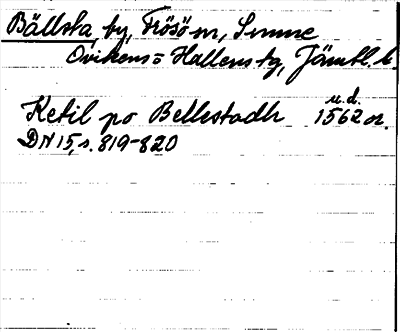 Bällsta, by, Frösö sn, Sunne
Ovikens o Hallens tg, Jämtl. l.
u.d.
Ketil po Bellestadh 1562 or.
DN 15, s. 819-820